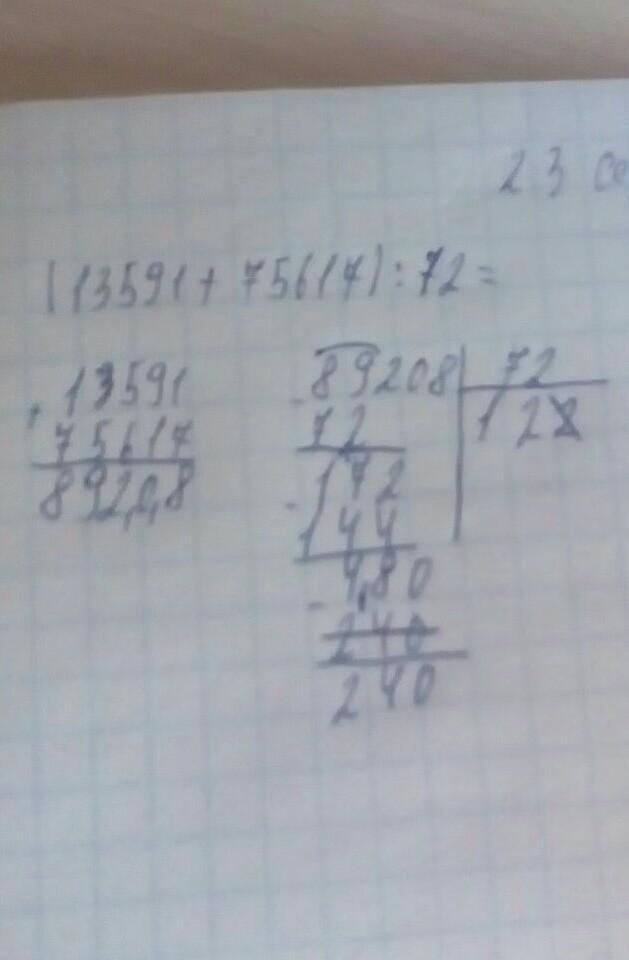 23 се
(13591+75617):72=
13591
+
75617
89208
-89208|72
72
128
172
-
144
280
-
240
240